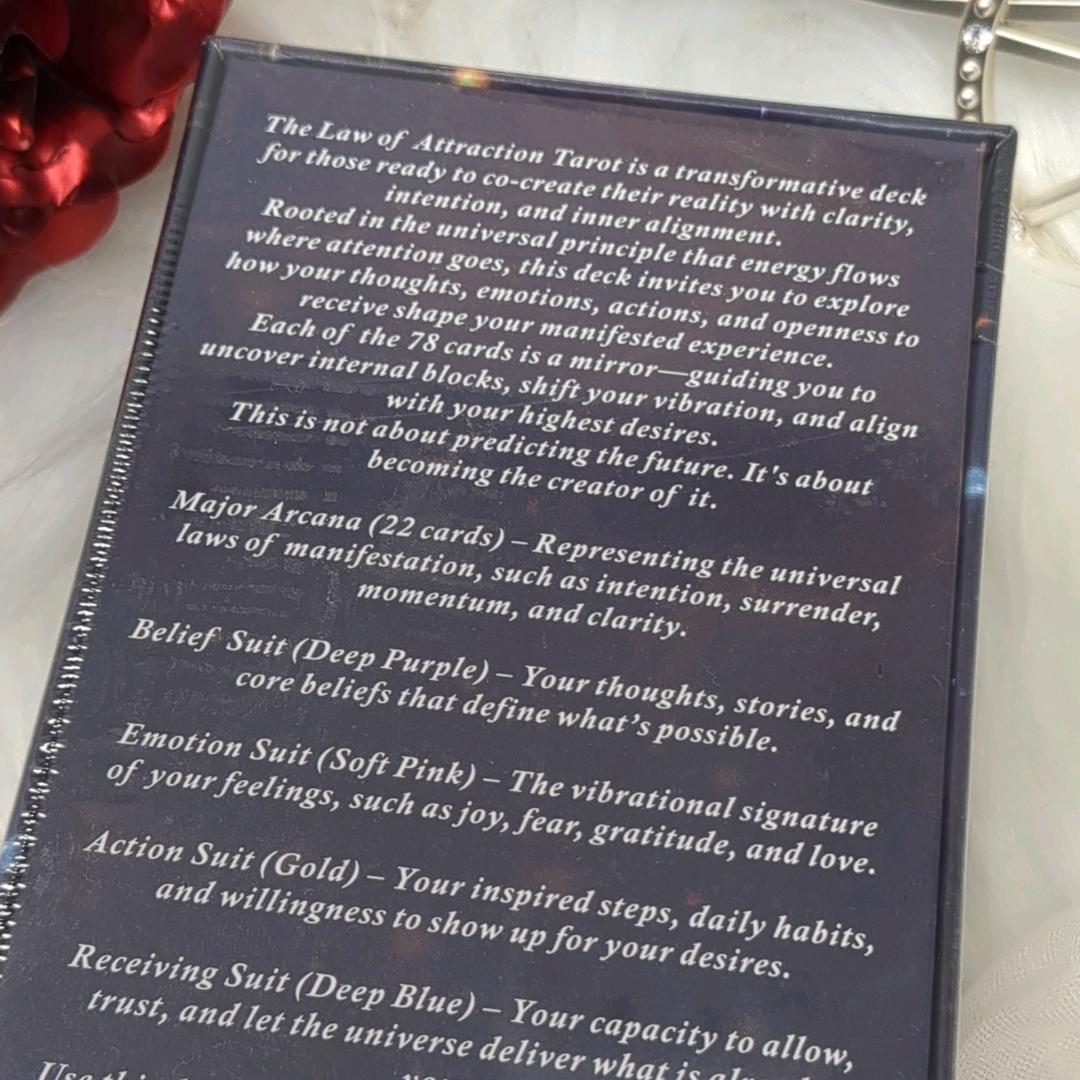 The Law of Attraction Tarot is a transformative deck
for those ready to co-create their reality with clarity,
intention, and inner alignment.
Rooted in the universal principle that energy flows
where attention goes, this deck invites you to explore
how your thoughts, emotions, actions, and openness to
receive shape your manifested experience.
Each of the 78 cards is a mirror—guiding you to
uncover internal blocks, shift your vibration, and align
with your highest desires.
This is not about predicting the future. It's about
becoming the creator of it.
Major Arcana (22 cards) – Representing the universal
laws of manifestation, such as intention, surrender,
momentum, and clarity.
Belief Suit (Deep Purple) – Your thoughts, stories, and
core beliefs that define what’s possible.
Emotion Suit (Soft Pink) – The vibrational signature
of your feelings, such as joy, fear, gratitude, and love.
Action Suit (Gold) – Your inspired steps, daily habits,
and willingness to show up for your desires.
Receiving Suit (Deep Blue) – Your capacity to allow,
trust, and let the universe deliver what is
Use